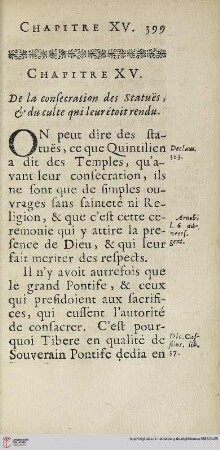 CHAPITRE XV. 399
CHAPITRE XV.
De la consecration des Statuës,
& du culte qui leur étoit rendu.
ON peut dire des sta-
tuës, ce que Quintilien
a dit des Temples, qu'a-
vant leur consecration, ils
ne sont que de simples ou-
vrages sans sainteté ni Re-
ligion, & que c'est cette ce-
remonie qui y attire la pre-
sence de Dieu, & qui leur
fait meriter des respects.
Il n'y avoit autrefois que
le grand Pontife, & ceux
qui presidoient aux sacrifi-
ces, qui eussent l'autorité
de consacrer. C'est pour-
quoi Tibere en qualité de
Souverain Pontife dedia en
Declam.
323.
Arnob.
l. 6 adv.
gent.
Dio. Cas-
lib.
57.